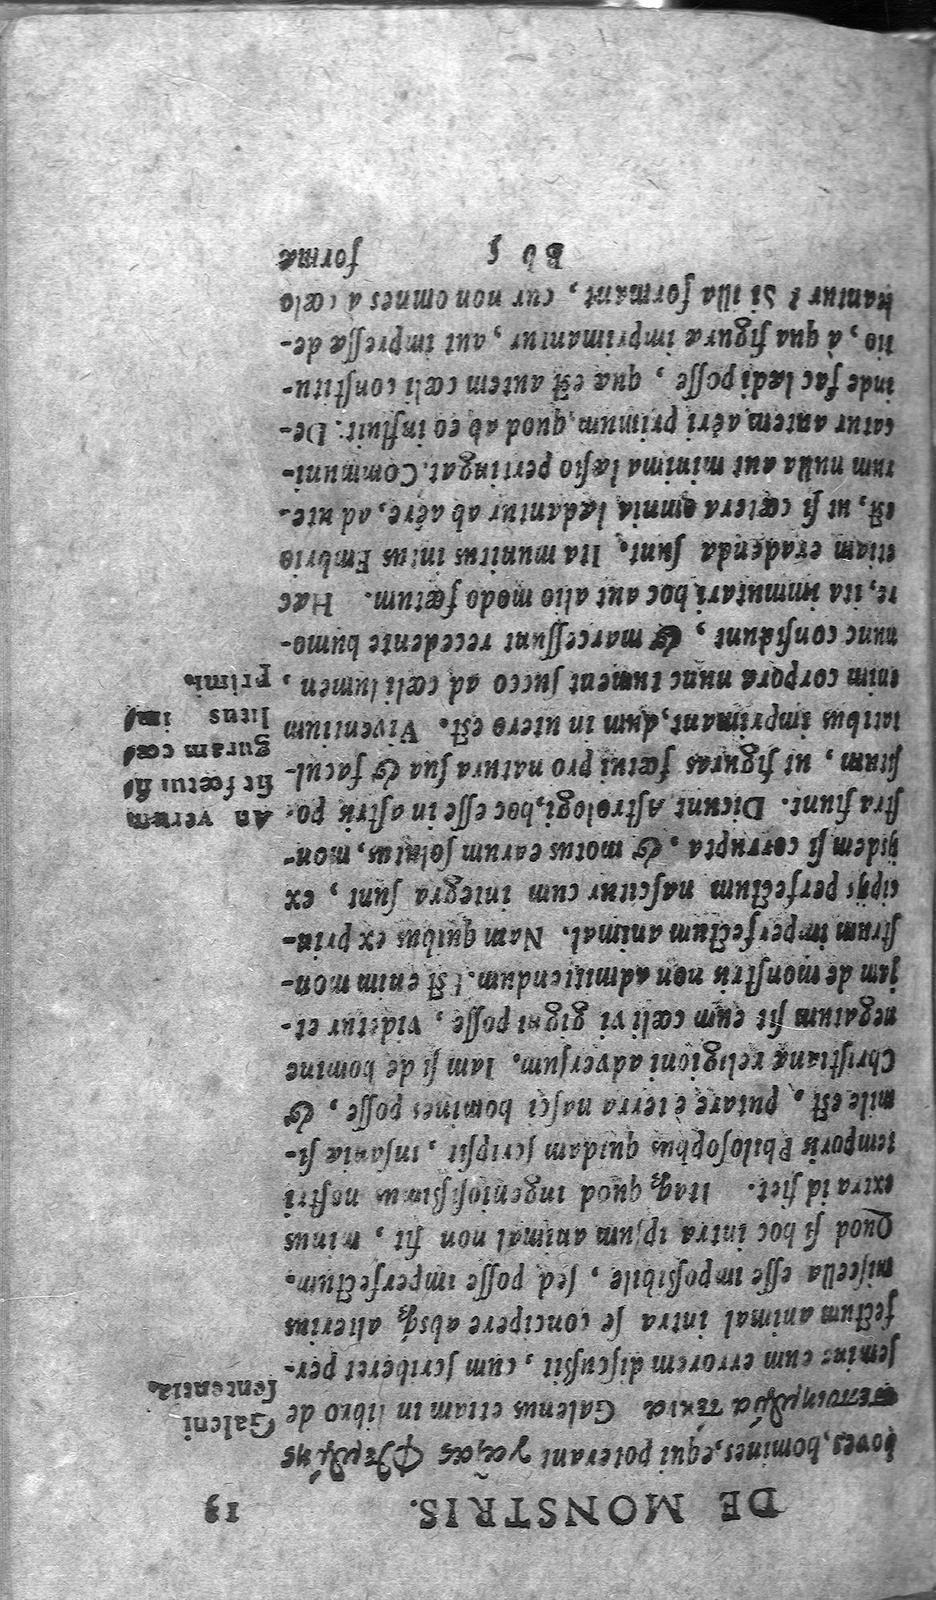 DE MONSTRIS. 13
boves, homines, equi poterant γαίας
τέκνα Galenus etiam in libro de
semine eum errorem discussit, cum scriberet per-
fectum animal intra se concipere absq́; alterius
miscella esse impoßibile, sed posse imperfectum.
Quod si hoc intra ipsum animal non fit, minus
extra id fiet. Itaq; quod ingeniosißimus nostri
temporis Philosophus quidam scripsit, insaniæ si-
mile est, putare e terra nasci homines posse, &
Christianæ religioni adversum. Iam si de homine
negatum sit eum cœli vi gigni posse, videtur et-
jam de monstris non admittendum. Est enim mon-
strum imperfectum animal. Nam quibus ex prin-
cipijs perfectum nascitur cum integra sunt, ex
ijsdem si corrupta, & motus earum solutus, mon-
stra fiunt. Dicunt Astrologi, hoc esse in astris po-
situm, ut figuras fœtui pro natura sua & facul-
tatibus imprimant, dum in utero est. Viventium
enim corpora nunc tument succo ad cœli lumen,
nunc considunt, & marcessunt recedente humo-
re, ita immutari hoc aut alio modo fœtum. Hæc
etiam eradenda sunt. Ita munitus intus Embrio
est, ut si cætera omnia lædantur ab aëre, ad ute-
rum nulla aut minima læsio pertingat. Communi-
catur autem aëri primum, quod ab eo influit: De-
inde fac lædi posse, quæ est autem cœli constitu-
tio, à qua figuræ imprimantur, aut impressæ de-
mantur? Si illa formant, cur non omnes à cœlo
Bb 5 formæ
Galeni
sententia.
An verum
sit fœtui fi
guram cœ
litus im
primi.